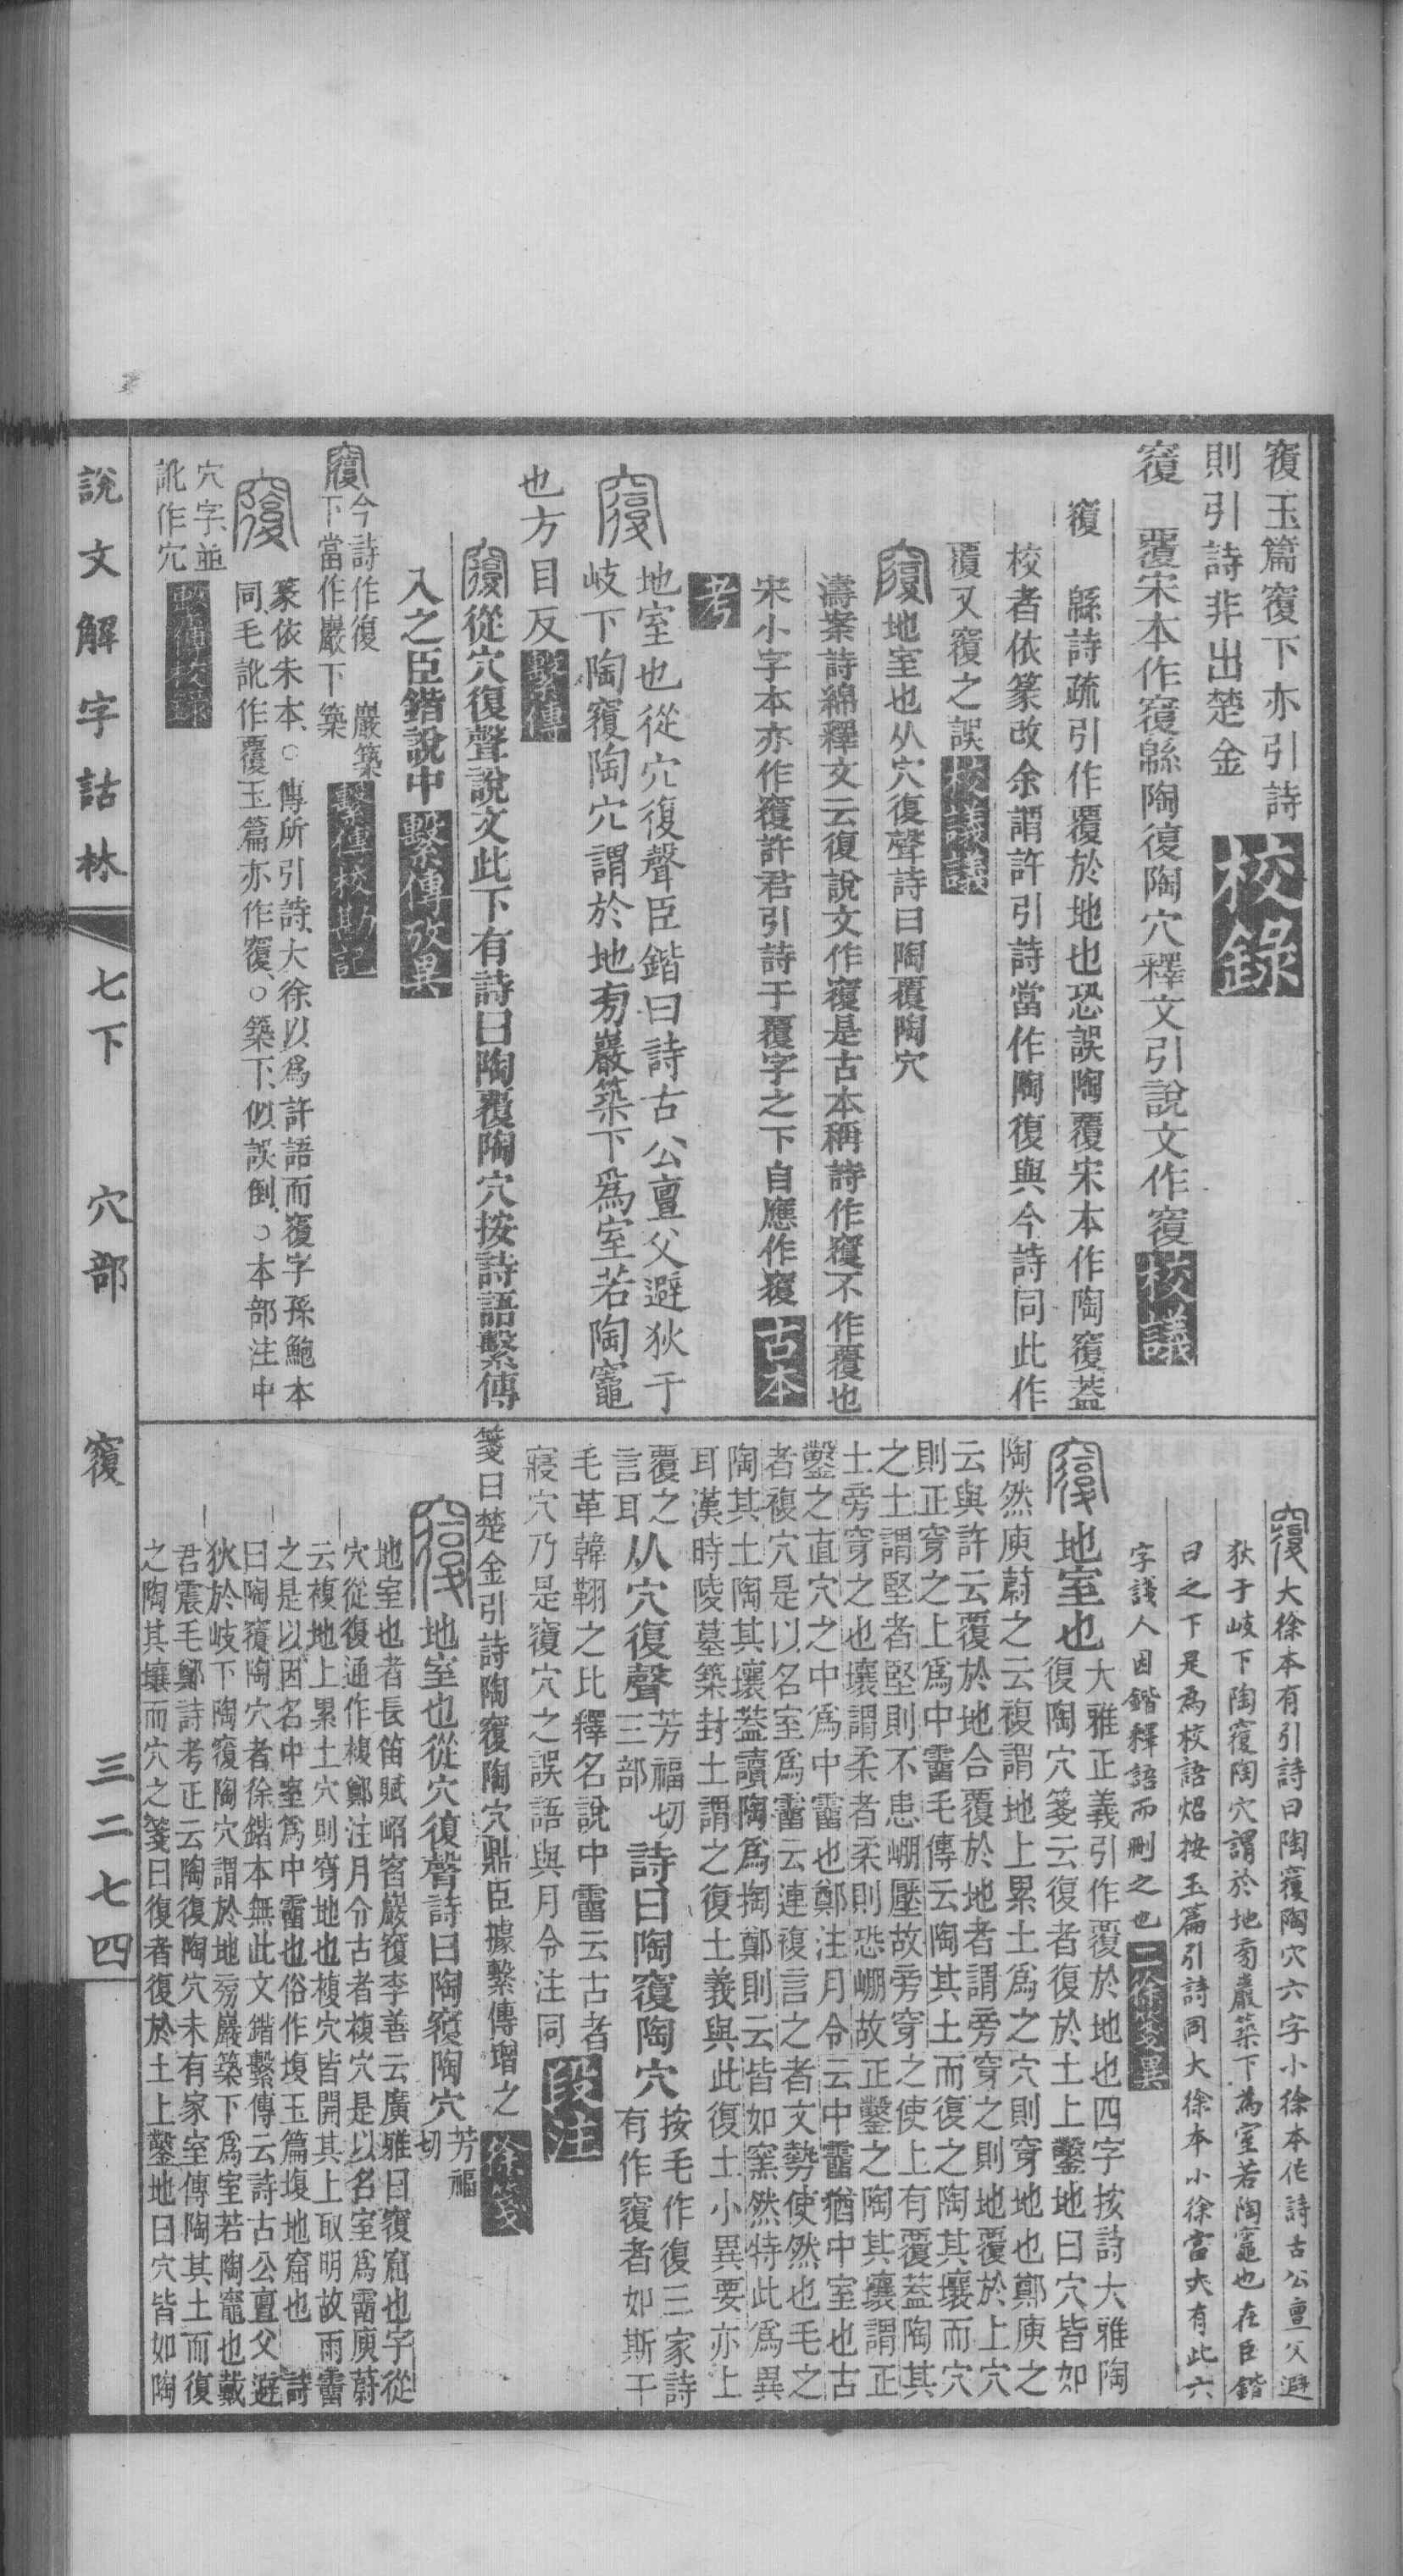 覆玉篇䆲下亦引詩
則引詩非出楚金 校錄
䆲 覆宋本作䆲緜陶復陶穴釋文引說文作䆲 校議
䆲 緜詩疏引作覆於地也恐誤陶覆宋本作陶䆲葢
校者依篆改余謂許引詩當作陶復與今詩同此作
覆又䆲之誤 校議議
䆲 地室也从穴復聲詩曰陶覆陶穴
濤案詩綿釋文云復說文作䆲是古本稱詩作䆲不作覆也
宋小字本亦作䆲許君引詩于覆字之下自應作䆲 古本
考
䆲 地室也從穴復聲臣鍇曰詩古公亶父避狄于
岐下陶䆲陶穴謂於地旁巖築下爲室若陶竈
也方目反 繫傳
䆲 從穴復聲說文此下有詩曰陶覆陶穴按詩語繫傳
入之臣鍇說中 繫傳攷異
䆲 今詩作復 巖築
下當作巖下築 繫傳校勘記
䆲 篆依朱本、○傳所引詩、大徐以爲許語而䆲字孫鮑本
同、毛訛作覆、玉篇亦作䆲、○築下、似誤倒、○本部注中
穴字、並
訛作宂 繫傳校錄
䆲 大徐本有引詩曰陶䆲陶穴六字小徐本作詩古公亶父避
狄于岐下陶䆲陶穴謂於地旁巖築下為室若陶竈也在臣鍇
曰之下是為校語炤按玉篇引詩同大徐本小徐當夾有此六
字淺人因鍇釋語而刪之也 二徐箋異
䆲 地室也 大雅正義引作覆於地也四字按詩大雅陶
復陶穴箋云復者復於土上鑿地曰穴皆如
陶然庾蔚之云複謂地上累土爲之穴則穿地也鄭庾之
云與許云覆於地合覆於地者謂旁穿之則地覆於上穴
則正穿之上爲中霤毛傳云陶其土而復之陶其壤而穴
之土謂堅者堅則不患崩壓故旁穿之使上有覆蓋陶其
土旁穿之也壤謂柔者柔則恐崩故正鑿之陶其壤謂正
鑿之直穴之中爲中霤也鄭注月令云中霤猶中室也古
者複穴是以名室爲霤云連複言之者文勢使然也毛之
陶其土陶其壤葢讀陶爲掏鄭則云皆如窯然特此爲異
耳漢時陵墓築封土謂之復土義與此復土小異要亦上
覆之
言耳 从穴復聲 芳福切
三部 詩曰陶䆲陶穴 按毛作復三家詩
有作䆲者如斯干
毛革韓翱之比釋名說中霤云古者
寢穴乃是䆲穴之誤語與月令注同 段注
箋曰楚金引詩陶䆲陶穴鼎臣據繫傳增之 徐箋
䆲 地室也從穴復聲詩曰陶䆲陶穴 芳福
切
地室也者長笛賦峆㟏巖䆲李善云廣雅曰䆲窟也字從
穴從復通作複鄭注月令古者複穴是以名室爲霤庾蔚
云複地上累土穴則穿地也複穴皆開其上取明故雨霤
之是以因名中室爲中霤也俗作㙏玉篇㙏地窟也 詩
曰陶䆲陶穴者徐鍇本無此文鍇繫傳云詩古公亶父避
狄於岐下陶䆲陶穴謂於地旁巖築下爲室若陶竈也戴
君震毛鄭詩考正云陶復陶穴未有家室傳陶其土而復
之陶其壤而穴之箋曰復者復於土上鑿地曰穴皆如陶
說文解字詁林 七下 穴部 䆲 三二七四